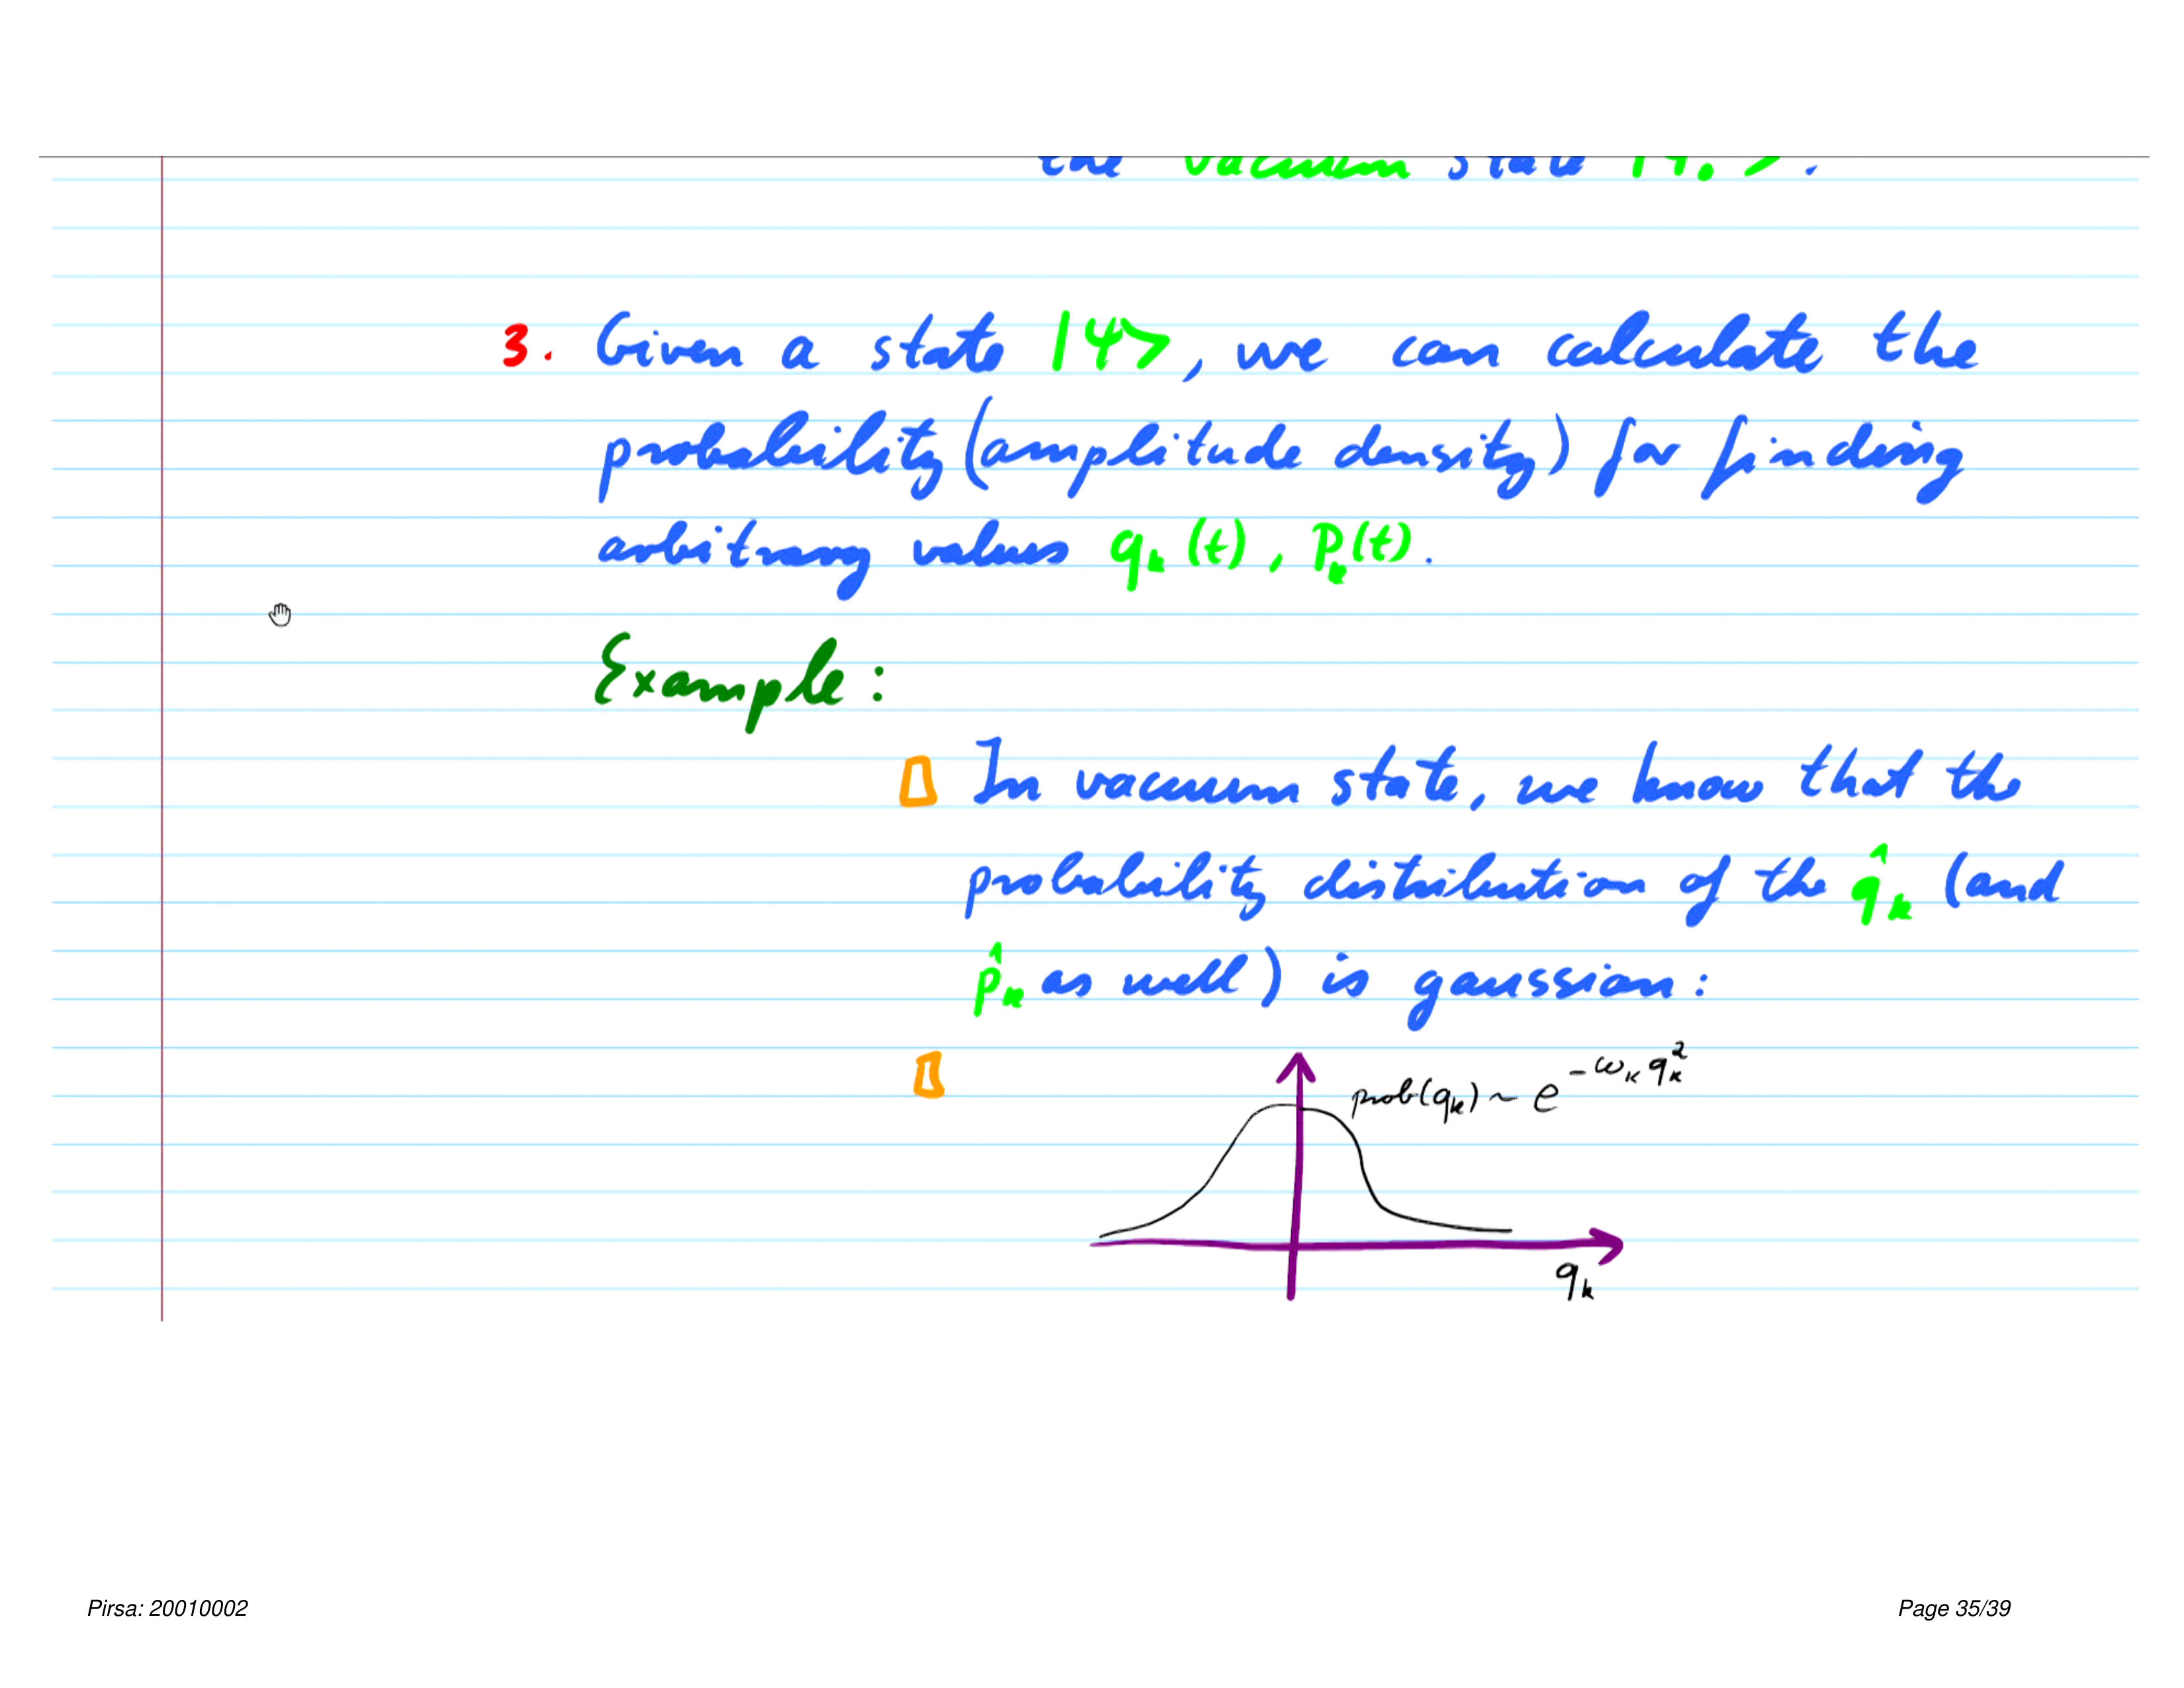 the vacuum state
3. Given a state |Ψ>, we can calculate the
probability (amplitude density) for finding
arbitrary values qₖ(t), pₖ(t).
Example:
In vacuum state, we know that the
probability distribution of the q̂ₖ (and
p̂ₖ as well) is gaussian:
prob(qₖ) ~ e^{-ωₖ qₖ²}
qₖ
Pirsa: 20010002
Page 35/39